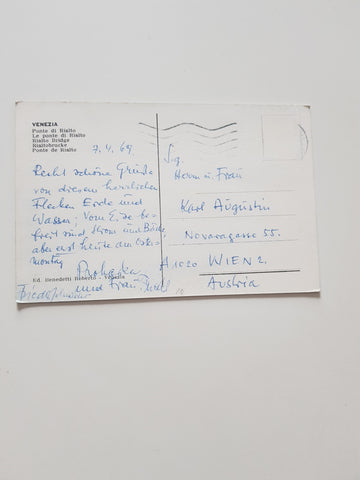 VENEZIA
Ponte di Rialto
Le ponte di Rialto
Rialto Bridge
Rialtobrucke
Ponte de Rialto
7.4.69
Recht schöne Grüße
von diesem herrlichen
Flecken Erde und
Wasser; vom
freit sind Strom und
aber erst heute am Oster-
montag
und Frau
Ed. Benedetti Roberto - Venezia
S.g.
Herrn u. Frau
Karl Augustin
Novaragasse 55.
A 1020 WIEN 2.
Austria